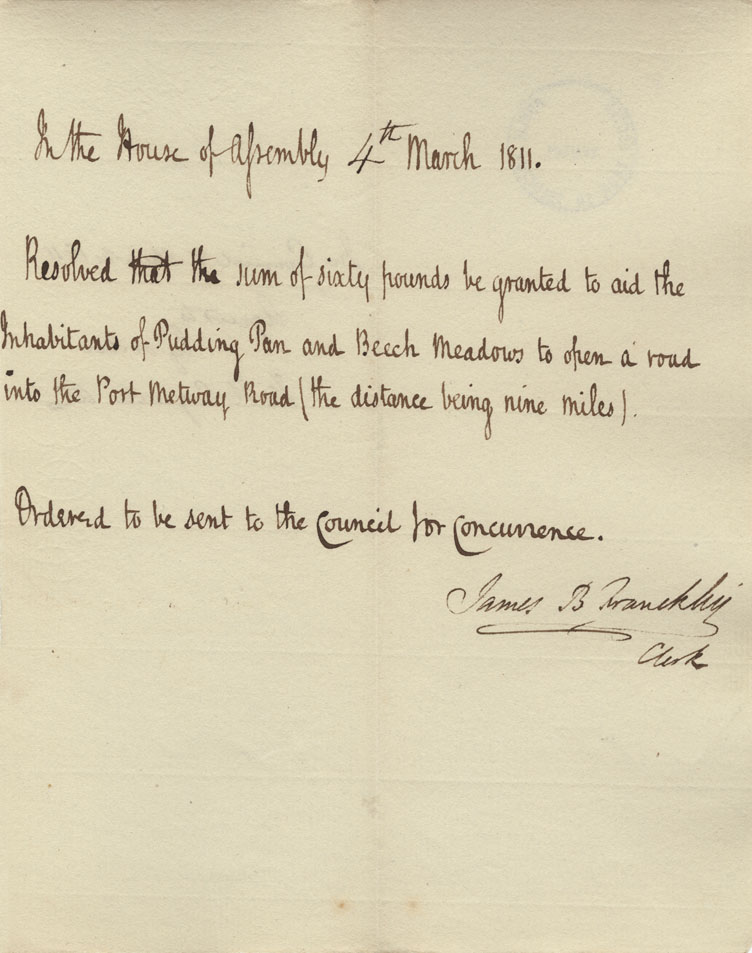 In the House of Assembly, 4th March 1811.
Resolved that the sum of sixty pounds be granted to aid the
Inhabitants of Pudding Pan and Beech Meadows to open a road
into the Port Metway Road (the distance being nine miles).
Ordered to be sent to the Council for Concurrence.
James B Francklin
Clerk